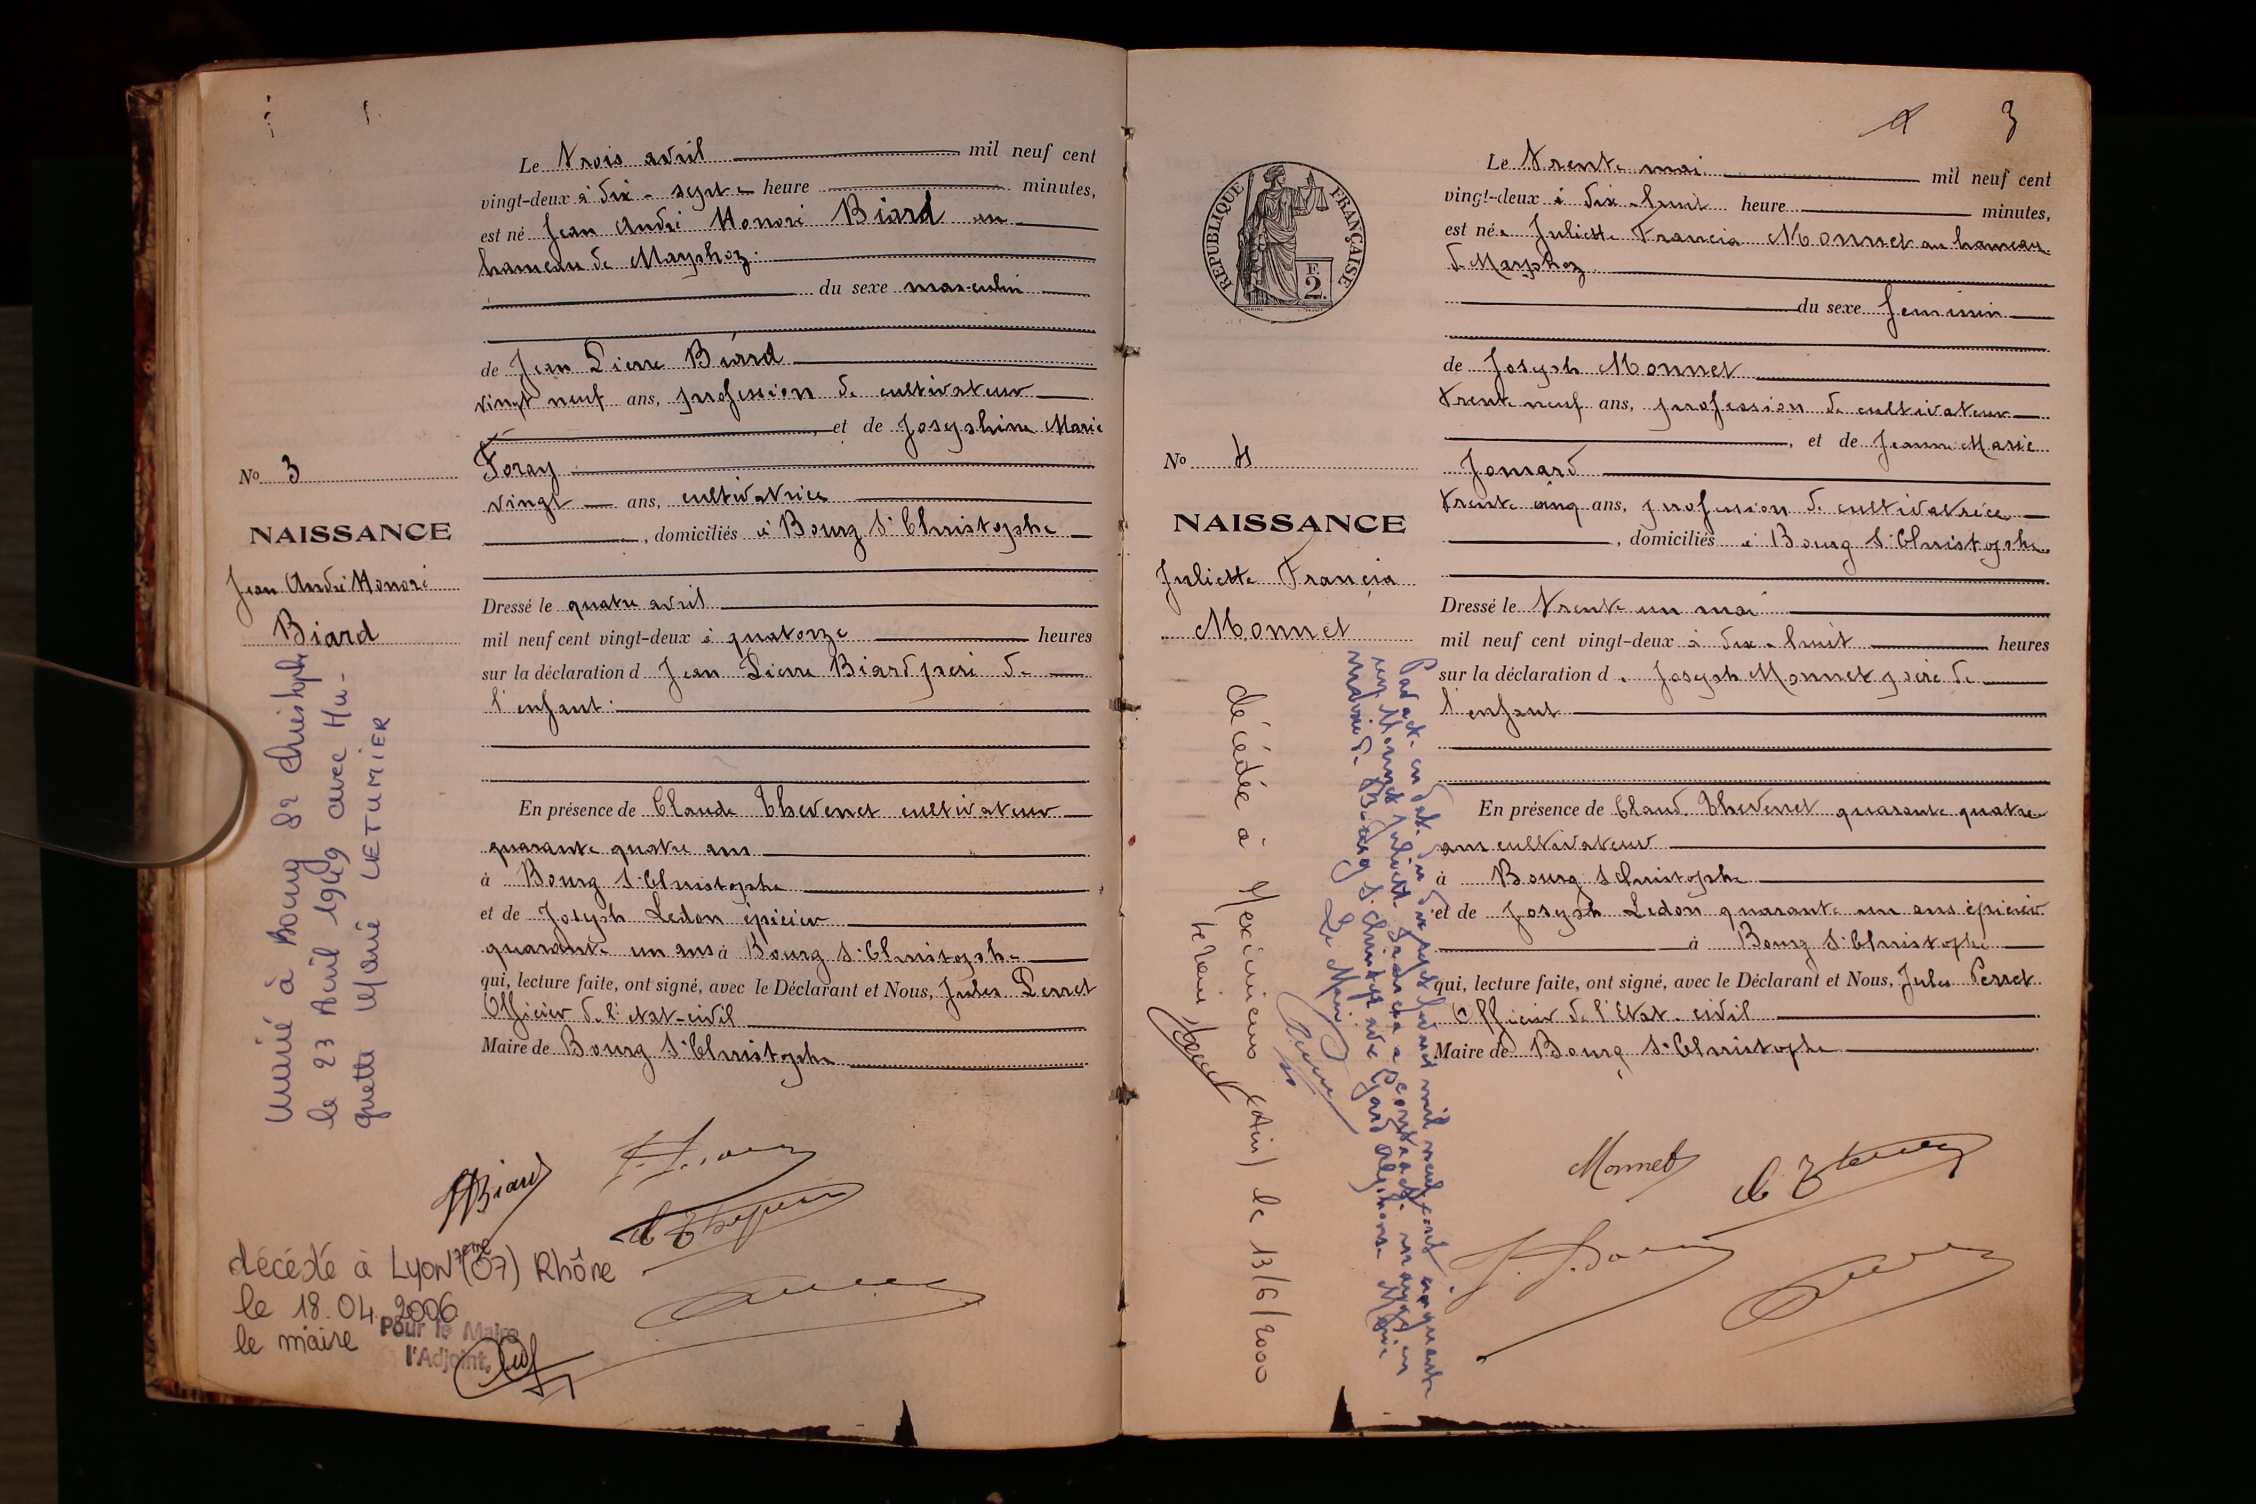 Le Trois avril mil neuf cent
vingt-deux à dix-sept heure minutes,
est né Jean André Honoré Biard au
hameau de Marphoz.
du sexe masculin
de Jean Pierre Biard
vingt neuf ans, profession de cultivateur
, et de Josephine Marie
Foray
vingt ans, cultivatrice
, domiciliés à Bourg St Christophe
Dressé le quatre avril
mil neuf cent vingt-deux à quatorze heures
sur la déclaration d Jean Pierre Biard père de
l'enfant.
En présence de Claude Thevenet cultivateur
quarante quatre ans
à Bourg St Christophe
et de Joseph Ledon épicier
quarante un ans à Bourg St Christophe
qui, lecture faite, ont signé, avec le Déclarant et Nous, Jules Perret
Officier de l'etat-civil
Maire de Bourg St Christophe
No 3
NAISSANCE
Jean André Honoré
Biard
Marié à Bourg St Christophe
le 23 Avril 1949 avec Hu-
guette Marie LETUMIER
Biard
décédé à Lyon 7eme (07) Rhône
le 18.04.2006
le maire
Pour le Maire
l'Adjoint,
3
RÉPUBLIQUE FRANÇAISE
F.
2.
Le Trente mai mil neuf cent
vingt-deux à dix-huit heure minutes,
est née Juliette Francia Monnet au hameau
de Marphoz
du sexe feminin
de Joseph Monnet
trente neuf ans, profession de cultivateur
, et de Jeanne Marie
Jomard
trente cinq ans, profession de cultivatrice
, domiciliés à Bourg St Christophe
Dressé le Trente un mai
mil neuf cent vingt-deux à dix-huit heures
sur la déclaration d Joseph Monnet père de
l'enfant
En présence de Claude Thevenet quarante quatre
ans cultivateur
à Bourg St Christophe
et de Joseph Ledon quarante un ans épicier
à Bourg St Christophe
qui, lecture faite, ont signé, avec le Déclarant et Nous, Jules Perret
Officier de l'Etat-civil
Maire de Bourg St Christophe
No 4
NAISSANCE
Juliette Francia
Monnet
Par acte en date du juillet mil neuf cent cinquante
Monnet Juliette Francia a contracté mariage en
mairie de Bourg St Christophe avec Alphonse Marie
Le Maire
décédée à Meximieux (Ain) le 13/6/2000
le Maire
Monnet